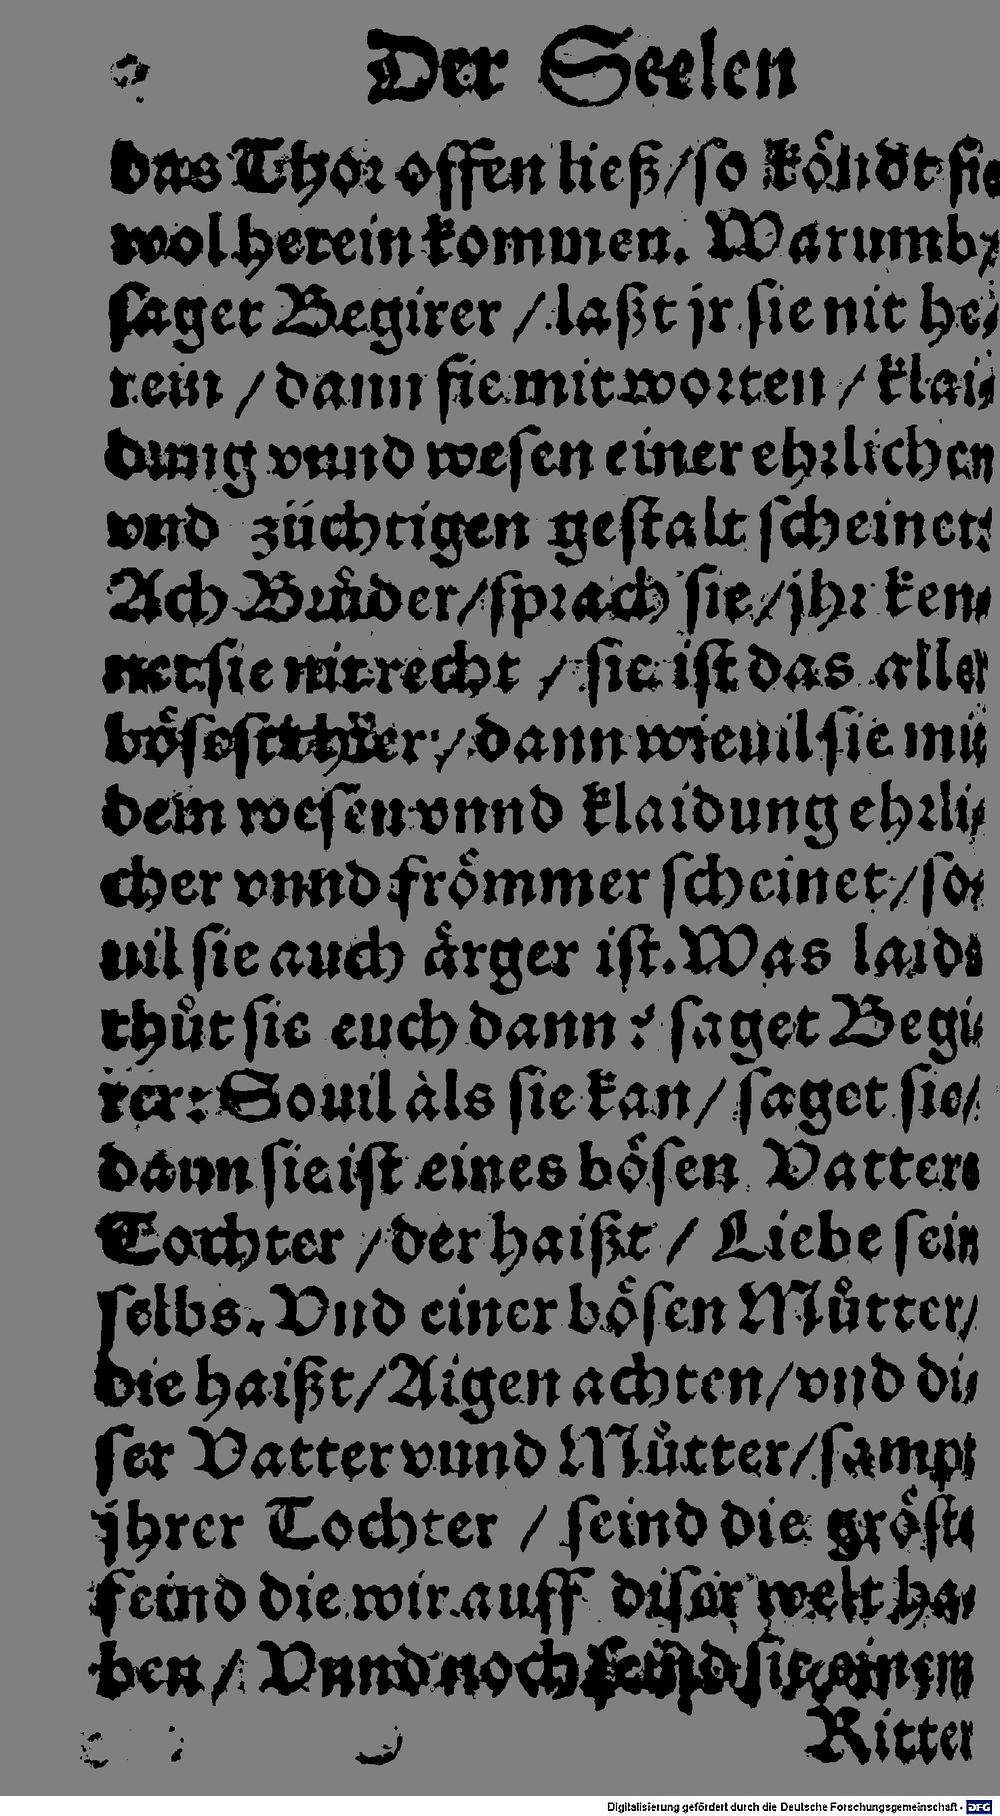 Der Seelen
das Thor offen ließ/so köndt sie
wol herein kommen. Warumb/
saget Begirer / laßt jr sie nit he/
rein / dann sie mit worten / klai/
dung vnnd wesen einer ehrlichen
vnd züchtigen gestalt scheinet:
Ach Brůder/sprach sie/jhr ken/
net sie nit recht / sie ist das aller
bösest thier / dann wieuil sie mit
dem wesen vnnd klaidung ehrli/
cher vnnd frömmer scheinet/so/
uil sie auch ärger ist. Was laids
thůt sie euch dann? saget Begi/
rer: Souil als sie kan/ saget sie/
dann sie ist eines bösen Vatters
Tochter /der haißt / Liebe sein
selbs. Vnd einer bösen Můtter/
die haißt/Aigen achten/vnd di/
ser Vatter vnnd Můtter/sampt
jhrer Tochter / seind die gröste
feind die wir auff diser welt ha/
ben / Vnnd noch seind sie einem
Ritter
Digitalisierung gefördert durch die Deutsche Forschungsgemeinschaft - DFG